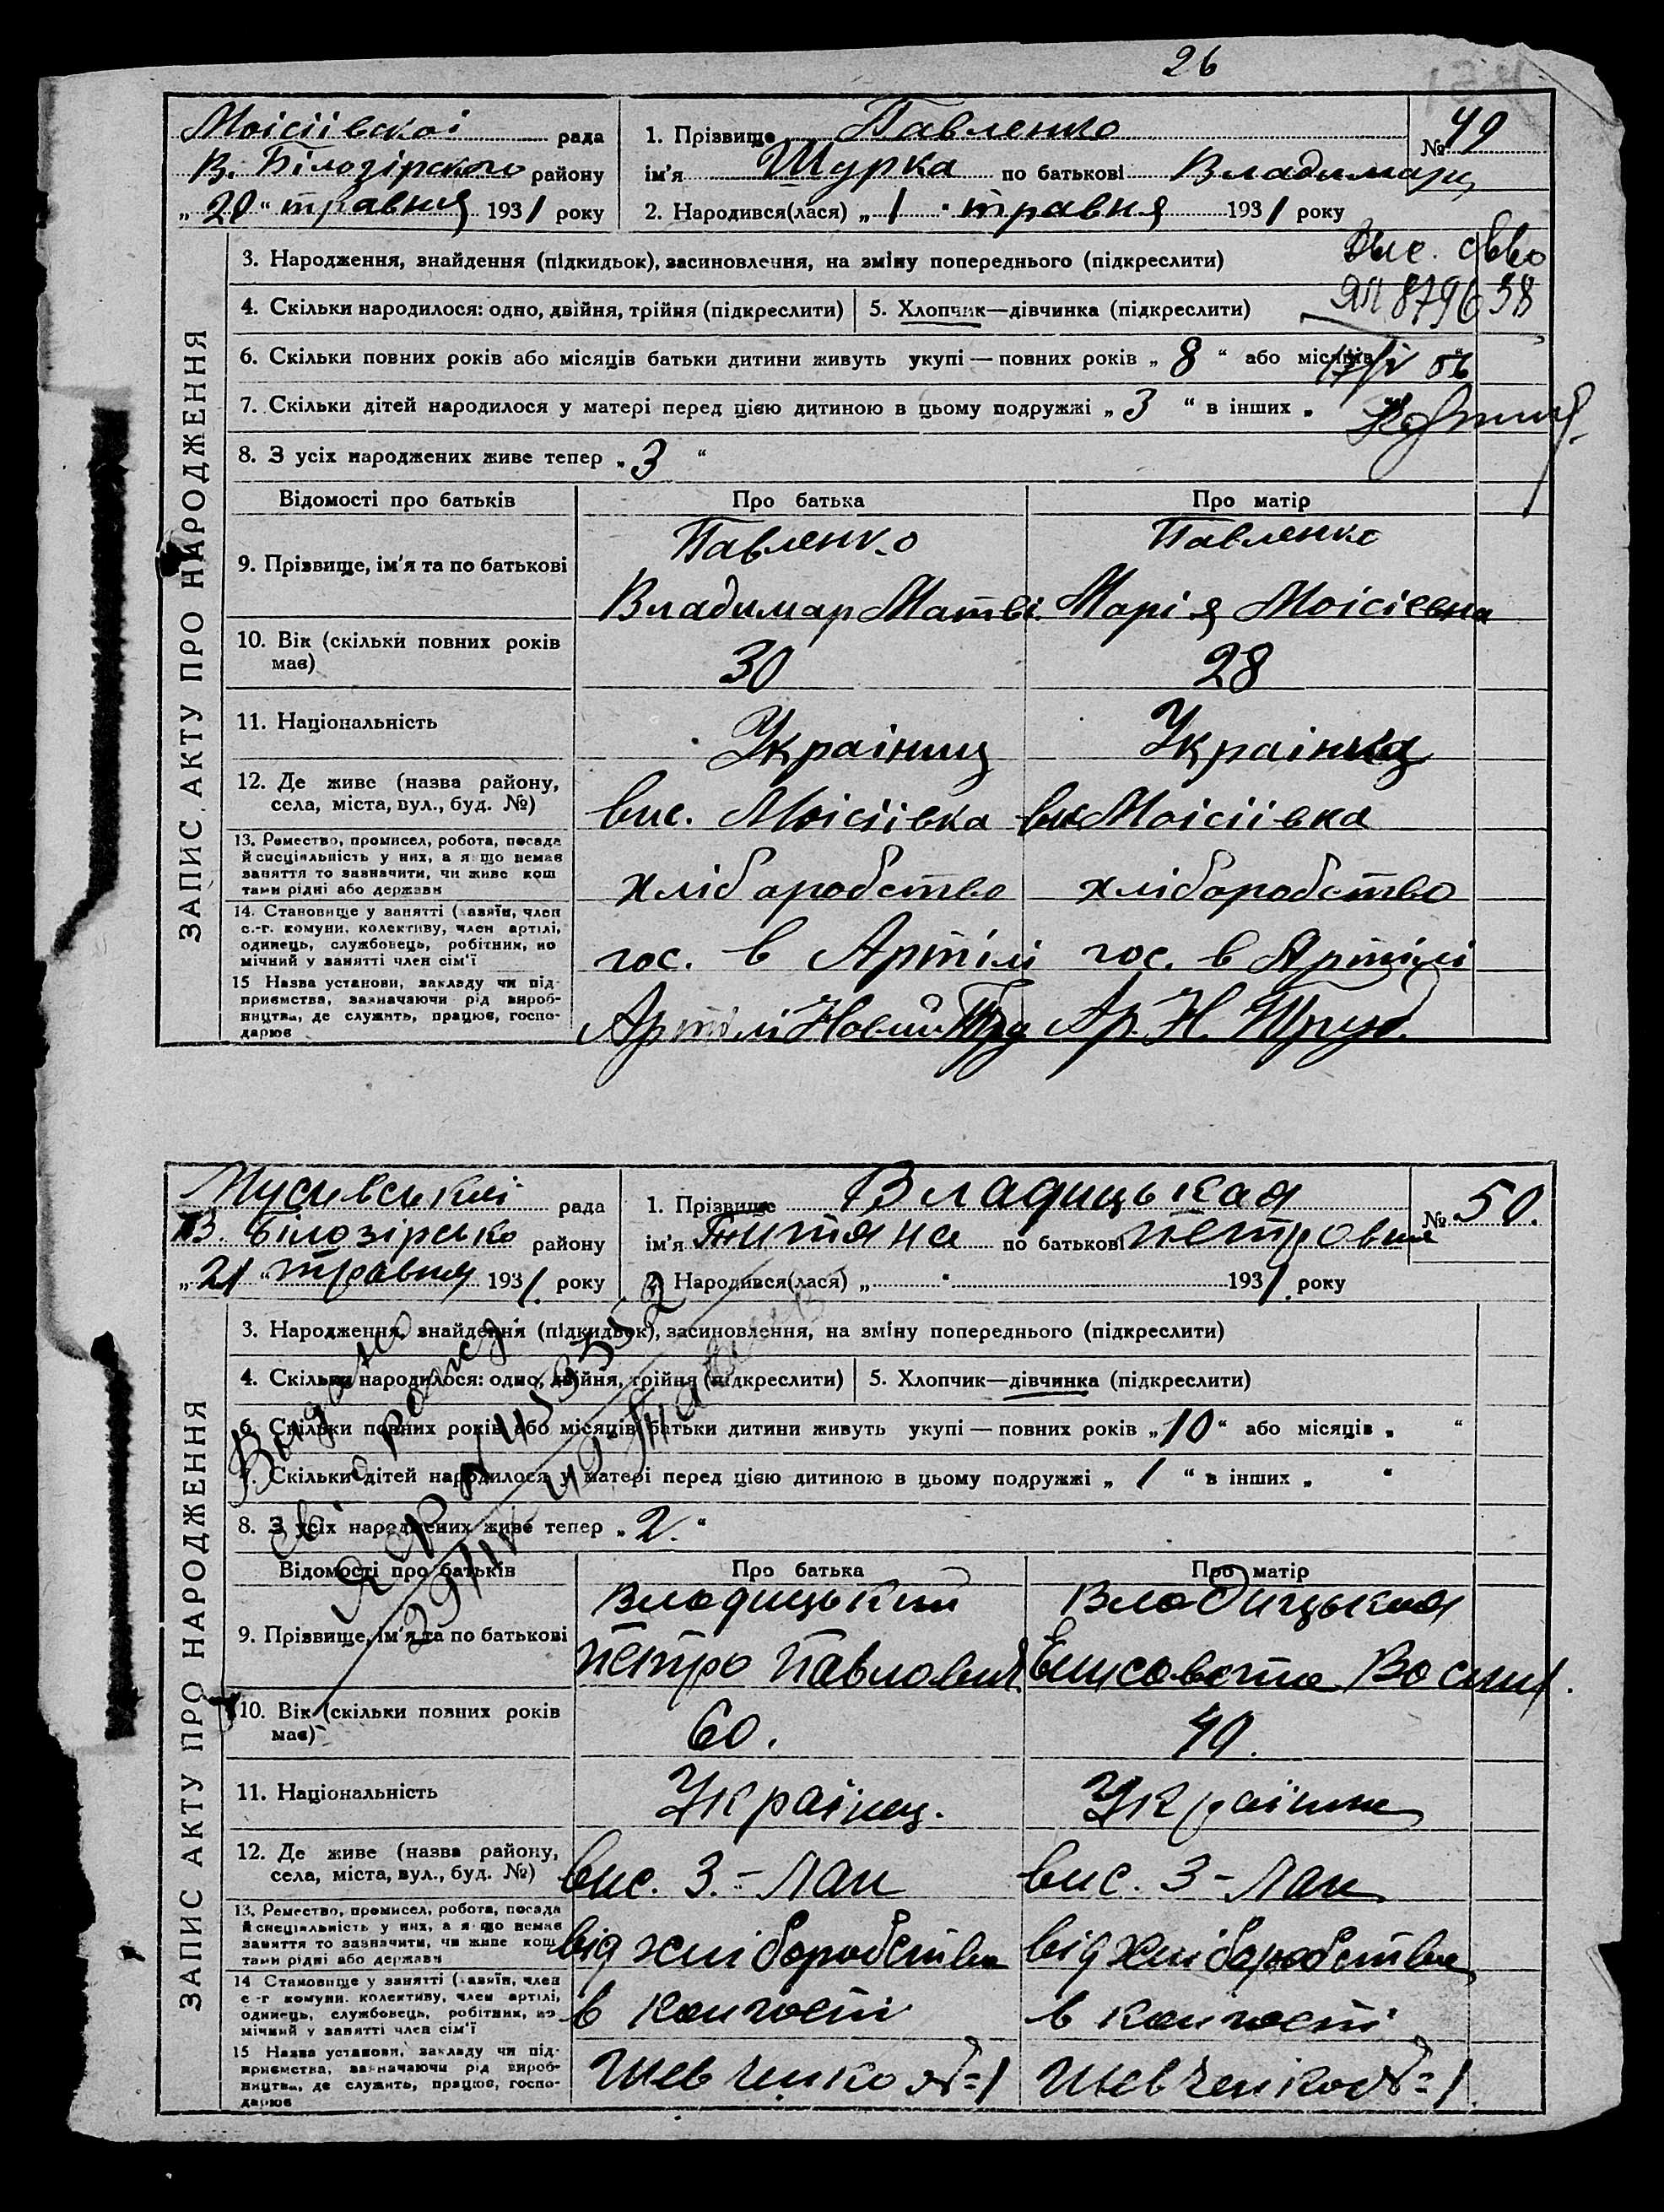 26
Моісіівскої рада
В. Білозірского району
„ 20 “ травня 1931 року
1. Прізвище Павленко
ім'я Шурка по батькові Владимарц
2. Народився(лася) „ 1 “ травня 1931 року
№ 49
3. Народження, знайдення (підкидьок), засиновлення, на зміну попереднього (підкреслити)
4. Скільки народилося: одно, двійня, трійня (підкреслити)
5. Хлопчик—дівчинка (підкреслити)
6. Скільки повних років або місяців батьки дитини живуть укупі — повних років „ 8 “ або місяців
7. Скільки дітей народилося у матері перед цією дитиною в цьому подружжі „ 3 “ в інших „
8. З усіх народжених живе тепер „ 3 “
Відомості про батьків
Про батька
Про матір
9. Прізвище, ім'я та по батькові
Павленко
Владимар Матві.
Павленко
Марія Моісієвна
10. Вік (скільки повних років
має)
30
28
11. Національність
Украіниц
Украінка
12. Де живе (назва району,
села, міста, вул., буд. №)
вис. Моісіівка
вис Моісіівка
13. Ремество, промисел, робота, посада
й спеціяльність у них, а якщо немає
заняття то зазначити, чи живе кош
тами рідні або держави
хліборобство
хліборобство
14. Становище у занятті (хазяїн, член
с.-г. комуни, колективу, член артілі,
одинець, службовець, робітник, по
мічний у занятті член сім'ї
гос. в Артілі
гос. в Артілі
15 Назва установи, закладу чи під-
приємства, зазначаючи рід вироб-
ництва, де служить, працює, госпо-
дарює
Артілі Новий Труд
Ар. Н. Труд.
ЗАПИС АКТУ ПРО НАРОДЖЕННЯ
ЯП 879638
Мусиівськиі рада
В. Білозірсько району
„ 21 “ травня 1931. року
1. Прізвище Владицькая
ім'я Титяна по батькові Петровня
2. Народився(лася) „ “ 1931. року
№ 50.
3. Народження, знайдення (підкидьок), засиновлення, на зміну попереднього (підкреслити)
4. Скільки народилося: одно, двійня, трійня (підкреслити)
5. Хлопчик—дівчинка (підкреслити)
6. Скільки повних років або місяців батьки дитини живуть укупі — повних років „ 10 “ або місяців „ “
7. Скільки дітей народилося у матері перед цією дитиною в цьому подружжі „ 1 “ в інших „ “
8. З усіх народжених живе тепер „ 2. “
Відомості про батьків
Про батька
Про матір
9. Прізвище, ім'я та по батькові
Владицький
Петро Павлович
Владицькая
Елисовета Восил.
10. Вік (скільки повних років
має)
60.
40.
11. Національність
Українец.
Українка
12. Де живе (назва району,
села, міста, вул., буд. №)
вис. З.-Лан
вис. З-Лан
13. Ремество, промисел, робота, посада
й спеціяльність у них, а якщо немає
заняття то зазначити, чи живе кош
тами рідні або держави
від хліборобства
від хліборобства
14 Становище у занятті (хазяїн, член
с-г комуни, колективу, член артілі,
одинець, службовець, робітник, по
мічний у занятті член сім'ї
в
в
15 Назва установи, закладу чи під-
приємства, зазначаючи рід вироб-
ництва, де служить, працює, госпо-
дарює
Шевченко №=1
Шевченко №=1
ЗАПИС АКТУ ПРО НАРОДЖЕННЯ